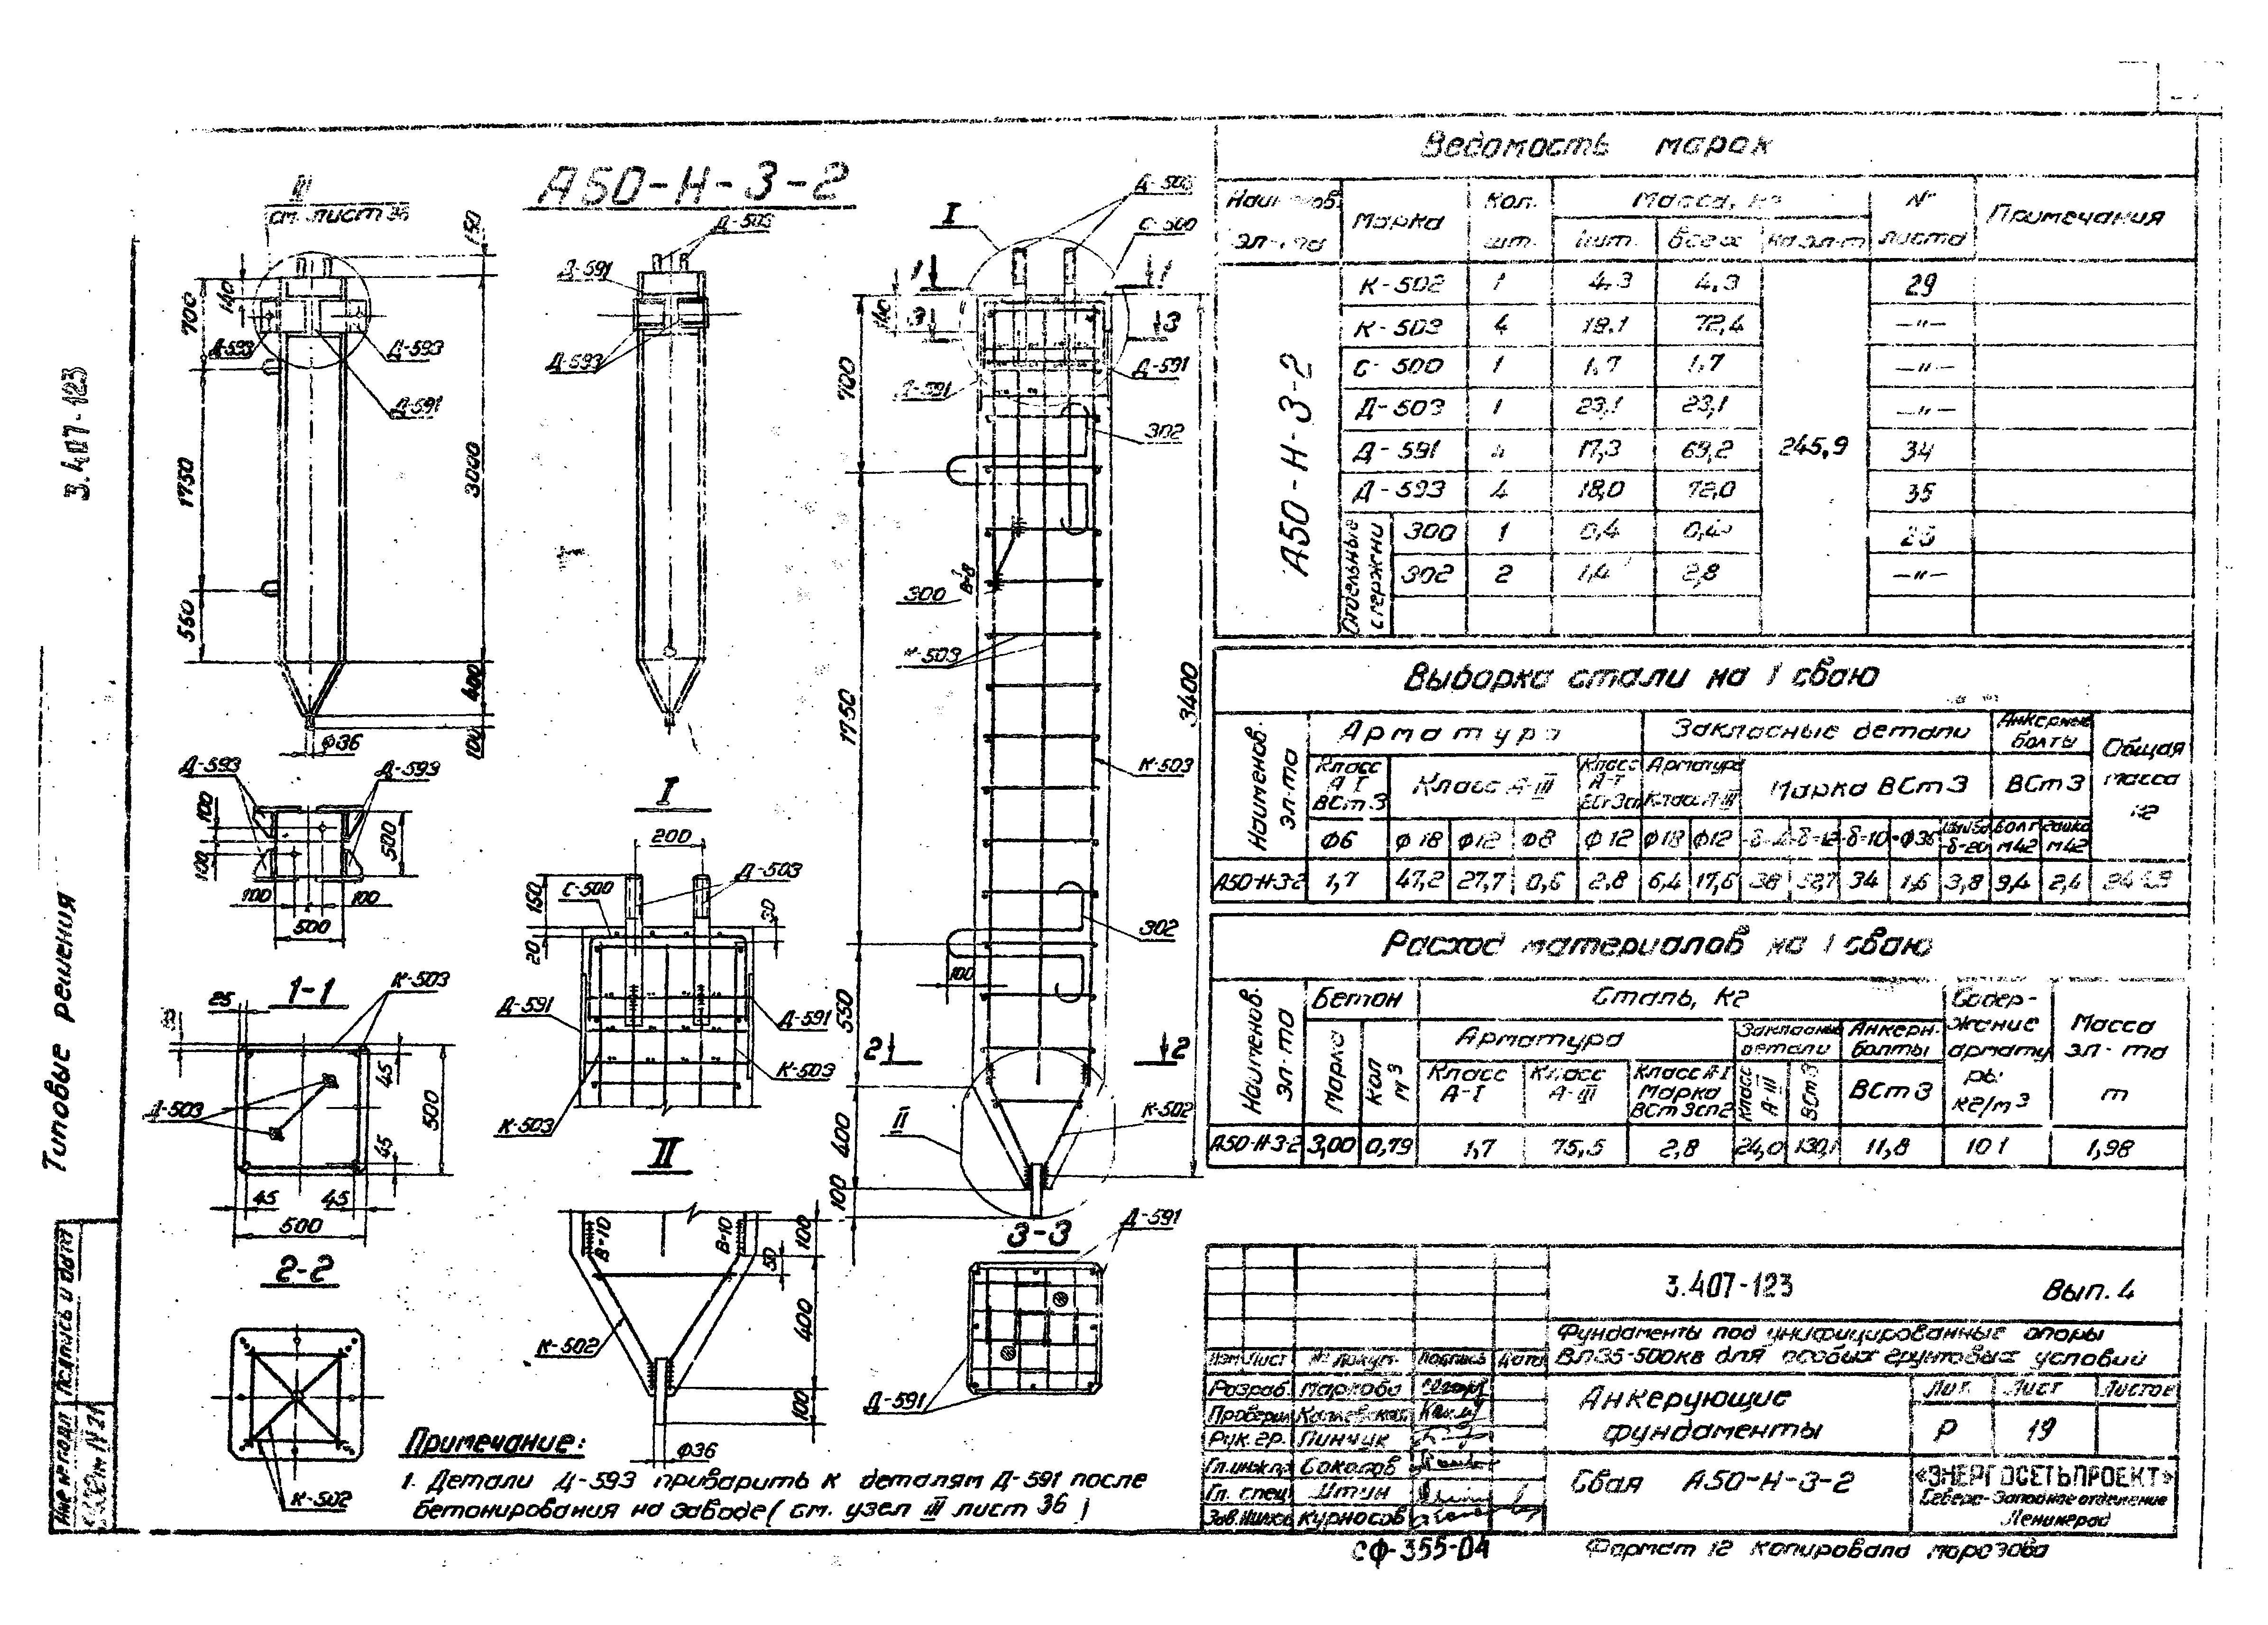 А50-Н-3-2
III
см. лист 36
Д-503
Д-591
Д-593
Д-593
Д-591
Д-593
150
140
700
1750
560
3000
400
100
Ф36
Д-593
Д-593
100
100
500
100
100
500
1-1
К-503
25
45
500
45
Д-503
45
45
500
2-2
К-502
I
200
Д-503
С-500
150
20
30
Д-591
Д-591
К-503
К-503
II
В-10
В-10
100
50
400
100
К-502
Ф36
I
С-500
1
1
3
3
700
Д-591
Д-591
302
300
В-8
К-503
1750
3400
К-503
302
100
550
2
2
II
К-502
400
100
3-3
Д-591
Д-591
Примечание:
1. Детали Д-593 приварить к деталям Д-591 после
бетонирования на заводе (см. узел III лист 36)
Ведомость марок
Марка Кол. шт. Масса, кг № листа Примечания
1шт. Всего на эл-т
А50-Н-3-2
К-502 1 4,3 4,3 29
К-503 4 18,1 72,4 —"—
С-500 1 1,7 1,7 —"—
Д-503 1 23,1 23,1 —"—
Д-591 17,3 69,2 245,9 34
Д-593 4 18,0 72,0 35
Отдельные стержни
300 1 0,4 0,4
302 2 1,4 2,8 —"—
Выборка стали на 1 сваю
Наименов. эл-та Арматура Закладные детали Анкерные болты Общая масса кг
Класс А-I ВСт3 Класс А-III Класс А-I Арматура Класс А-III Марка ВСт3 ВСт3
Ф6 Ф18 Ф12 Ф8 Ф12 Ф18 Ф12 δ-12 δ-10 Ф36 δ-20 Болт М42 Гайка М42
А50-Н-3-2 1,7 47,2 27,7 0,6 2,8 6,4 17,6 38 52,7 34 1,6 3,8 9,4 2,4
Расход материалов на 1 сваю
Наименов. эл-та Бетон Сталь, кг Содержание арматуры кг/м3 Масса эл-та т
Марка Кол м3 Арматура Закладные детали Анкерн. болты
Класс А-I Класс А-III Класс А-I Марка ВСт3сп2 Класс А-III ВСт3 ВСт3
А50-Н-3-2 3,00 0,79 1,7 75,5 2,8 24,0 130,1 11,8 101 1,98
3.407-123 Вып. 4
Фундаменты под унифицированные опоры
ВЛ35-500кв для особых грунтовых условий
Изм. Лист № докум. Подпись Дата
Разраб. Маркова
Проверил
Рук. гр. Пинчук
Гл.инж.пр. Соколов
Гл. спец. Штин
Курносов
Анкерующие
фундаменты
Лит. Лист Листов
Р 19
Свая А50-Н-3-2
«ЭНЕРГОСЕТЬПРОЕКТ»
Северо-Западное отделение
Ленинград
СФ-355-04
Формат 12 Копировала Морозова
3.407-123
Типовые решения
Инв № подл Подпись и дата